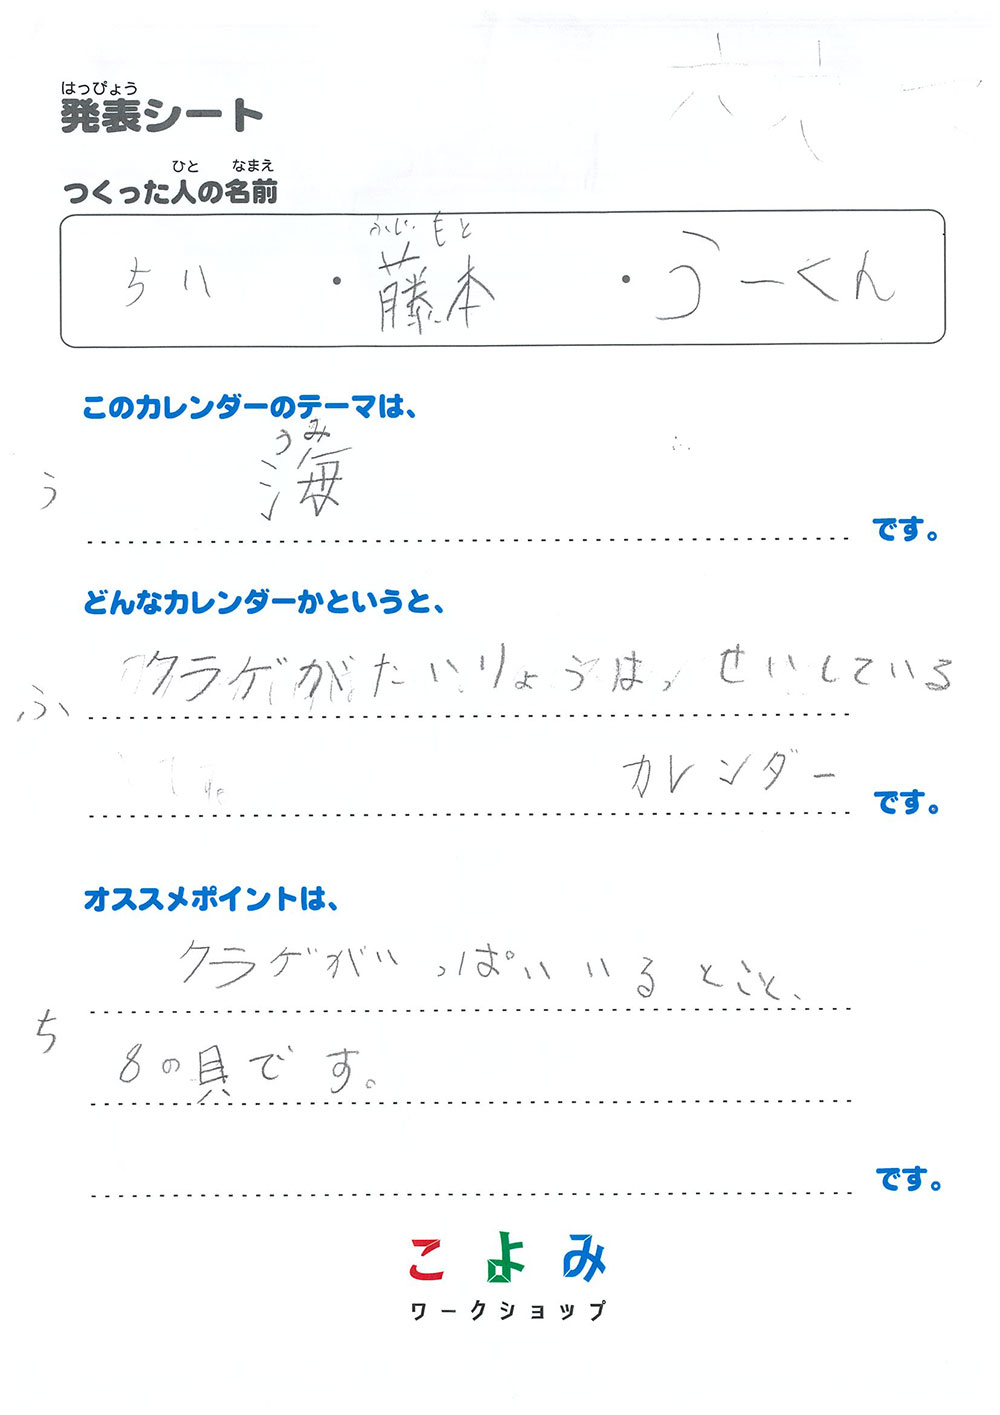 六 六 一
はっぴょう
発表シート
ひと なまえ
つくった人の名前
ふじ もと
ちい ・ 藤本 ・ うーくん
このカレンダーのテーマは、
うみ
う 海
です。
どんなカレンダーかというと、
ふ クラゲがたいりょうはっせいしている
カレンダー
です。
オススメポイントは、
クラゲがいっぱいいるとこと、
ち
8の貝です。
です。
こよみ
ワークショップ